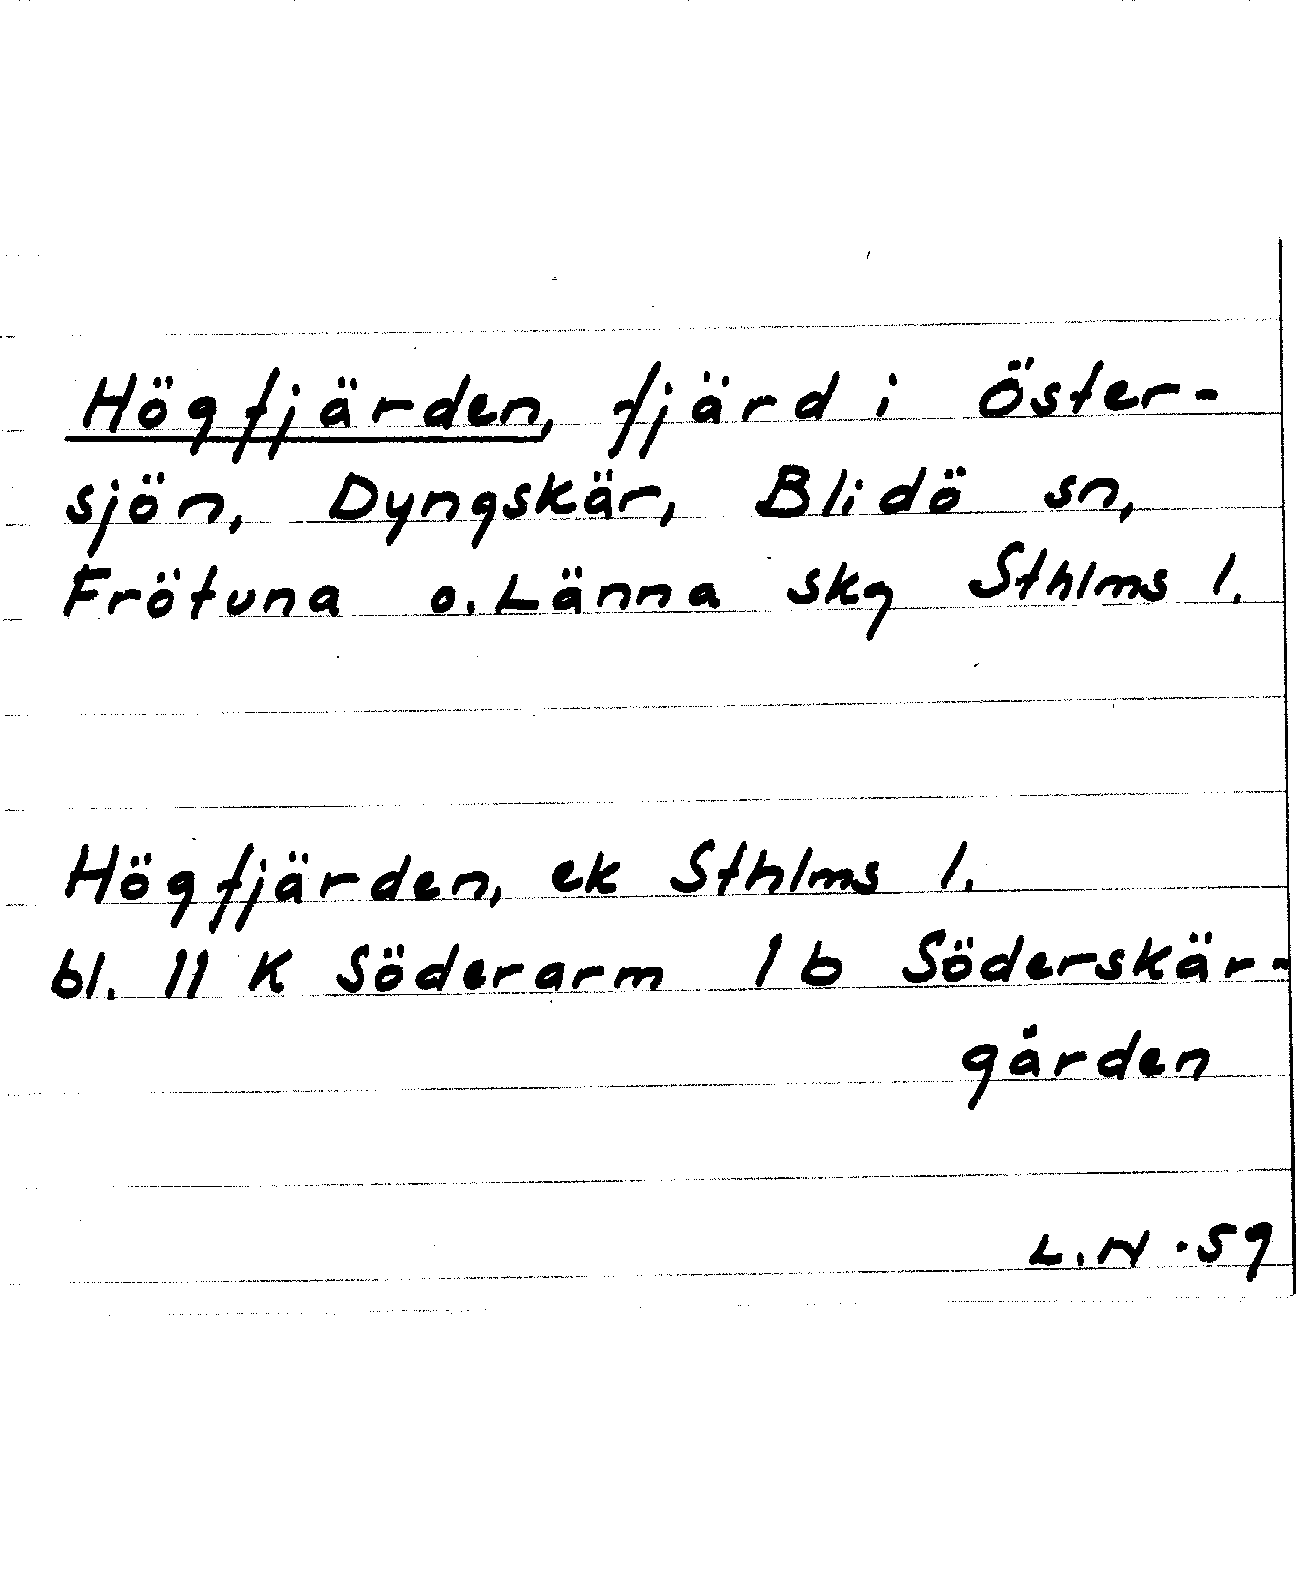 Högfjärden, fjärd i Öster-
sjön, Dyngskär, Blidö sn,
Frötuna o. Länna skg Sthlms l.
Högfjärden, ek Sthlms l.
bl. 11 K Söderarm 1 b Söderskär-
gården
L.N. 59